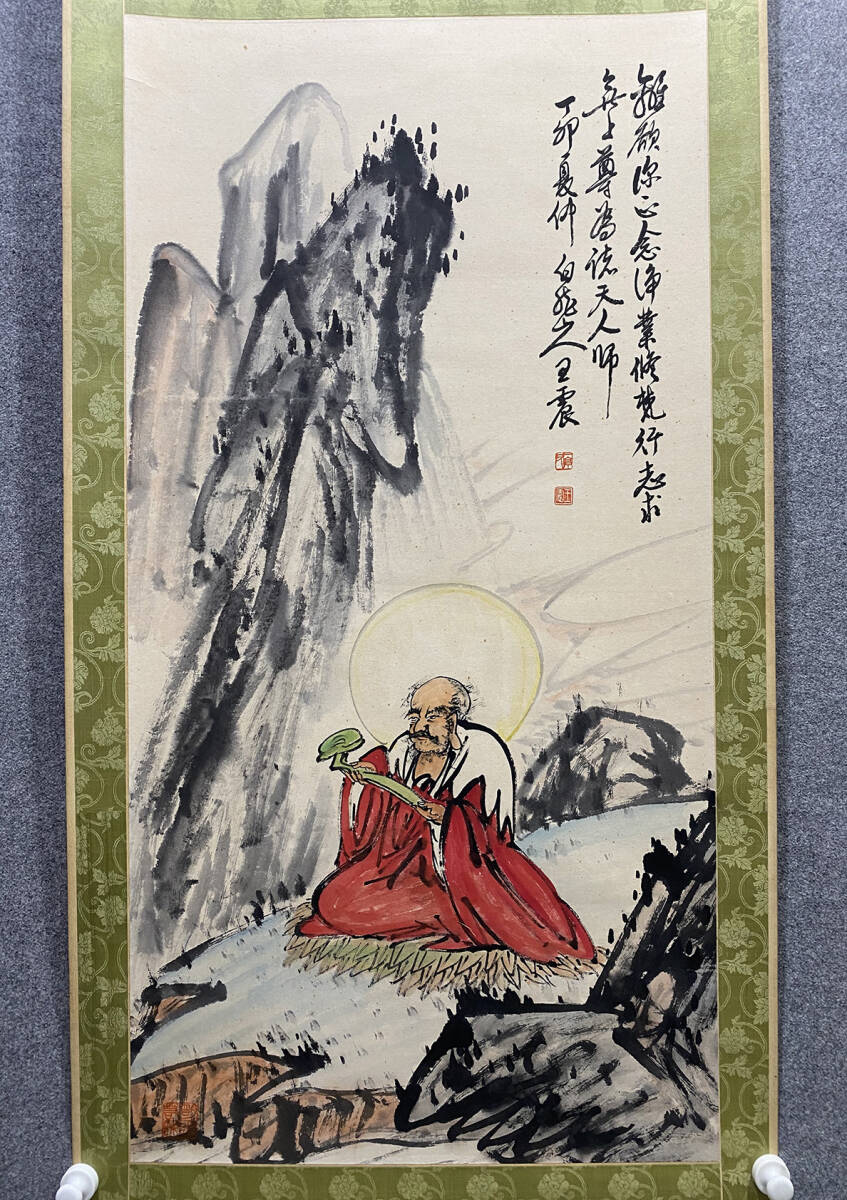 離欲深正念淨業修梵行志求
無上尊為諸天人師
丁卯夏仲 白龍山人王震